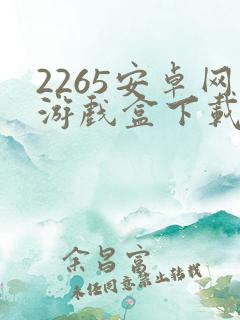 2265安卓网
游戏盒下载
余昌富
未经同意禁止转载